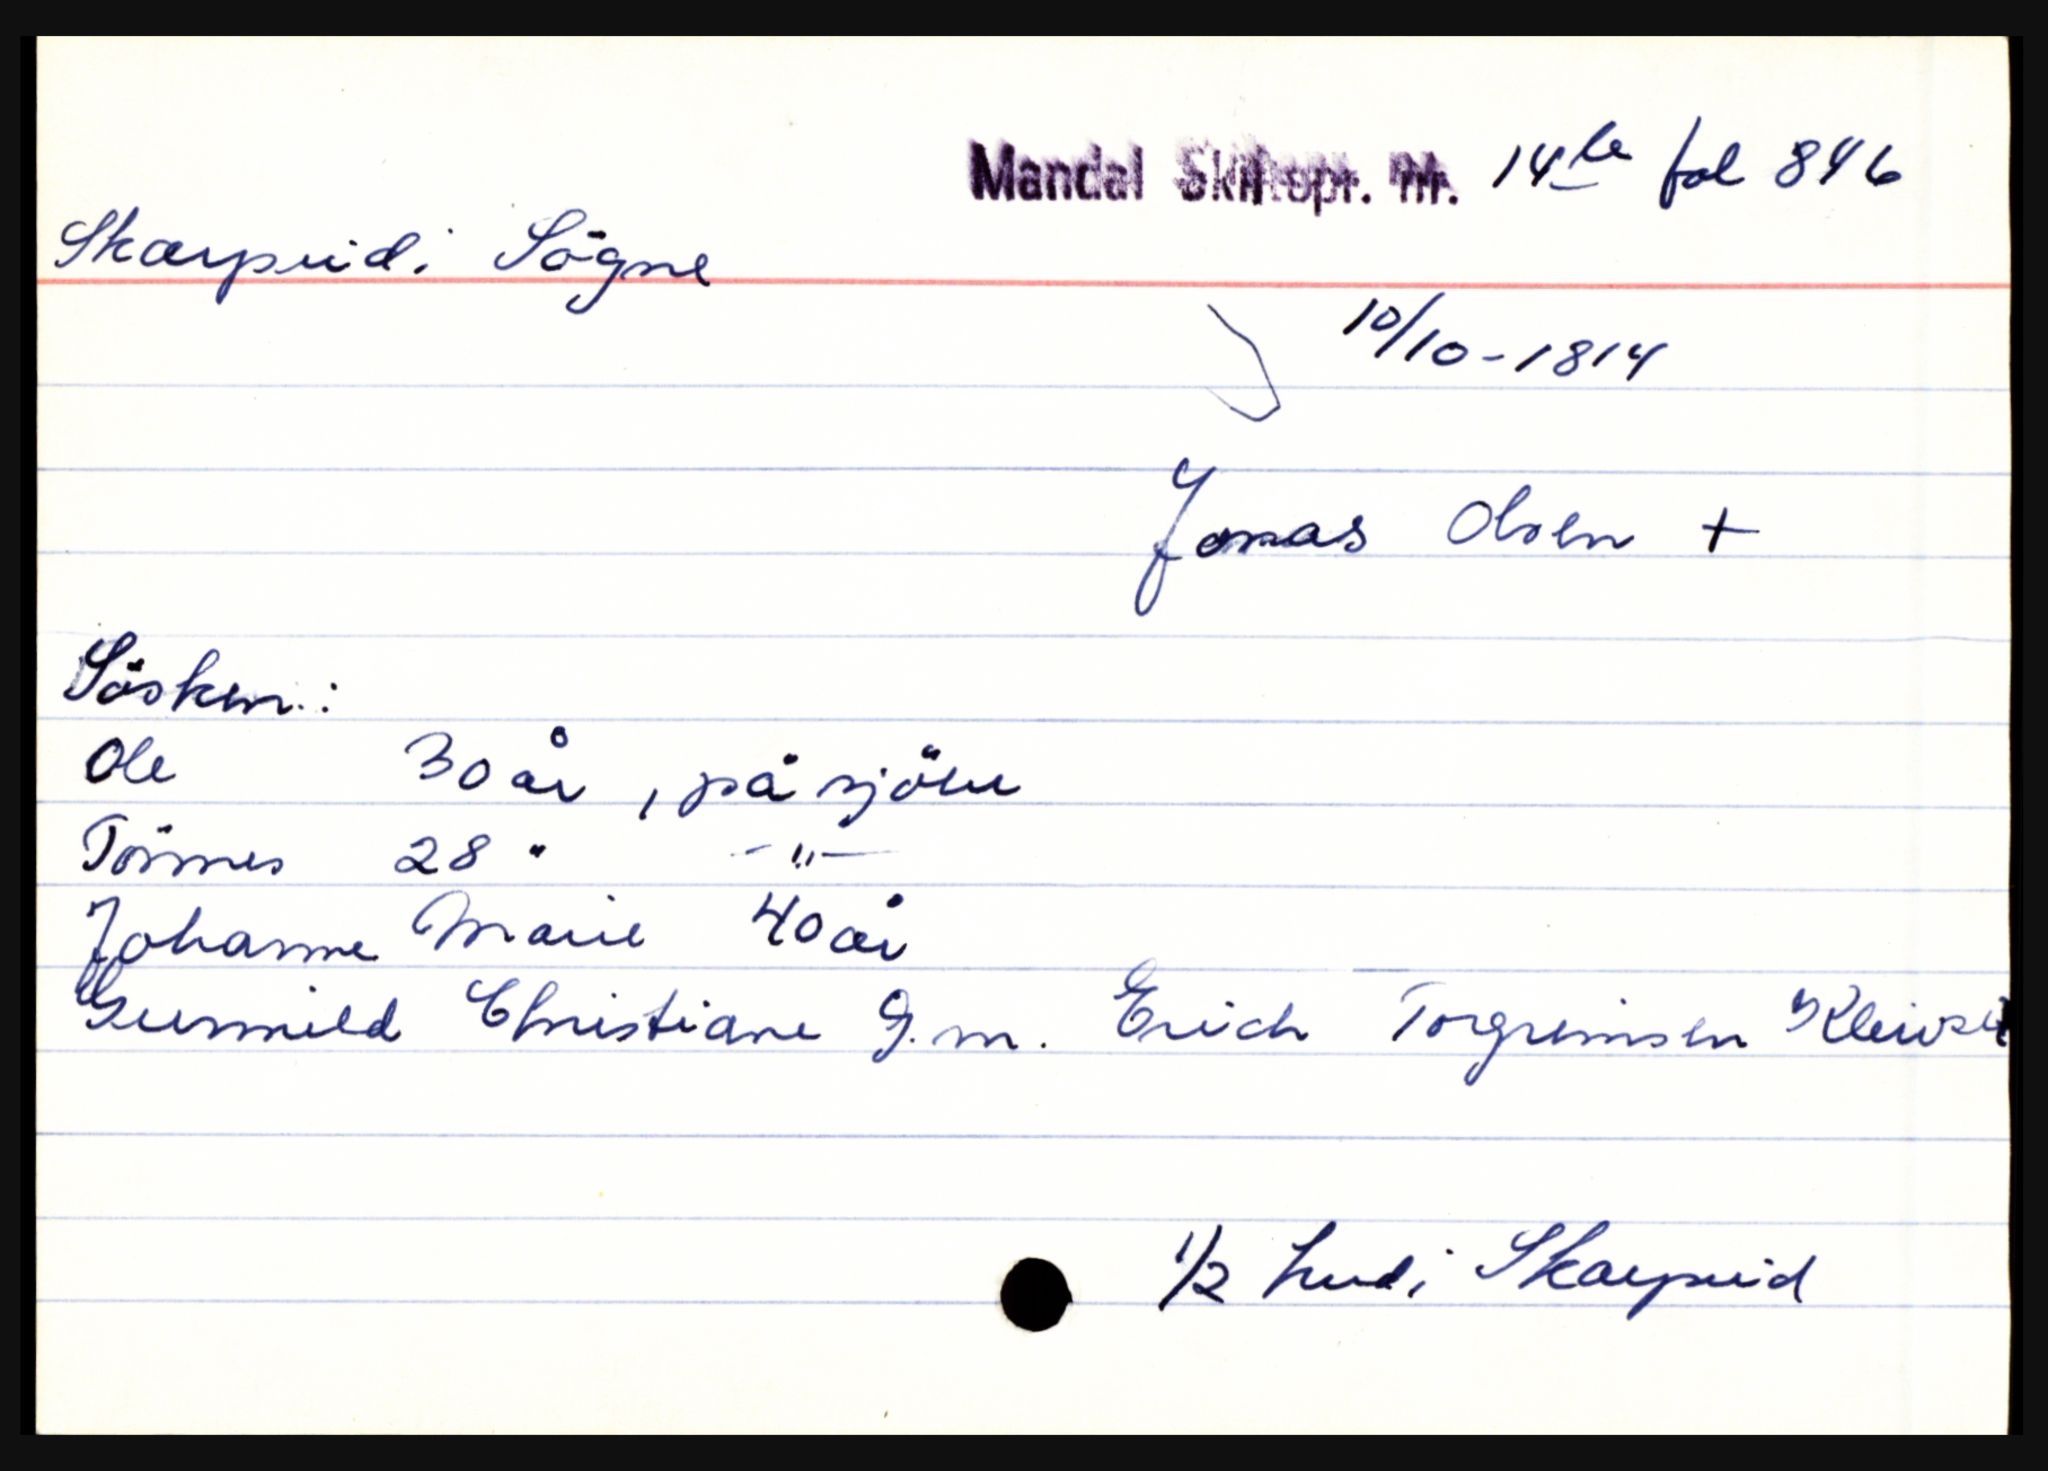 Mandal Skiftepr. nr. 14 b fol 846
Skarpeid i Sögne
10/10-1814
Jonas Olsen +
Sösken:
Ole 30 år, på sjöen
Tönnes 28 " - " -
Johanne Marie 40 år
Gunnild Christiane g.m. Erich Torgrimsen Kleivset
1/2 hud i Skarpeid